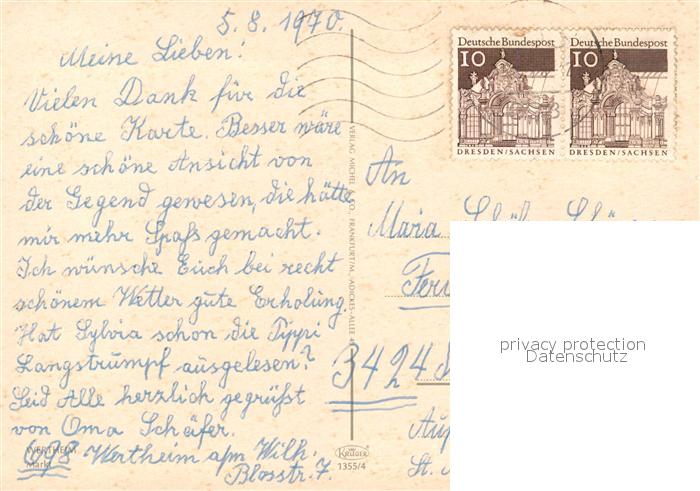 5.8.1970.
Meine Lieben!
Vielen Dank für die
schöne Karte. Besser wäre
eine schöne Ansicht von
der Gegend gewesen, die hätte
mir mehr Spaß gemacht.
Ich wünsche Euch bei recht
schönem Wetter gute Erholung.
Hat Sylvia schon die Pippi
Langstrumpf ausgelesen?
Seid Alle herzlich gegrüßt
von Oma Schäfer.
698 Wertheim a/m Wilh.
Blosstr. 7.
WERTHEIM
Markt
VERLAG MICHEL & CO., FRANKFURT/M., ADICKES-ALLEE
KRÜGER
1355/4
Deutsche Bundespost
10
DRESDEN/SACHSEN
Deutsche Bundespost
10
DRESDEN/SACHSEN
An
Maria
3424
St.
privacy protection
Datenschutz